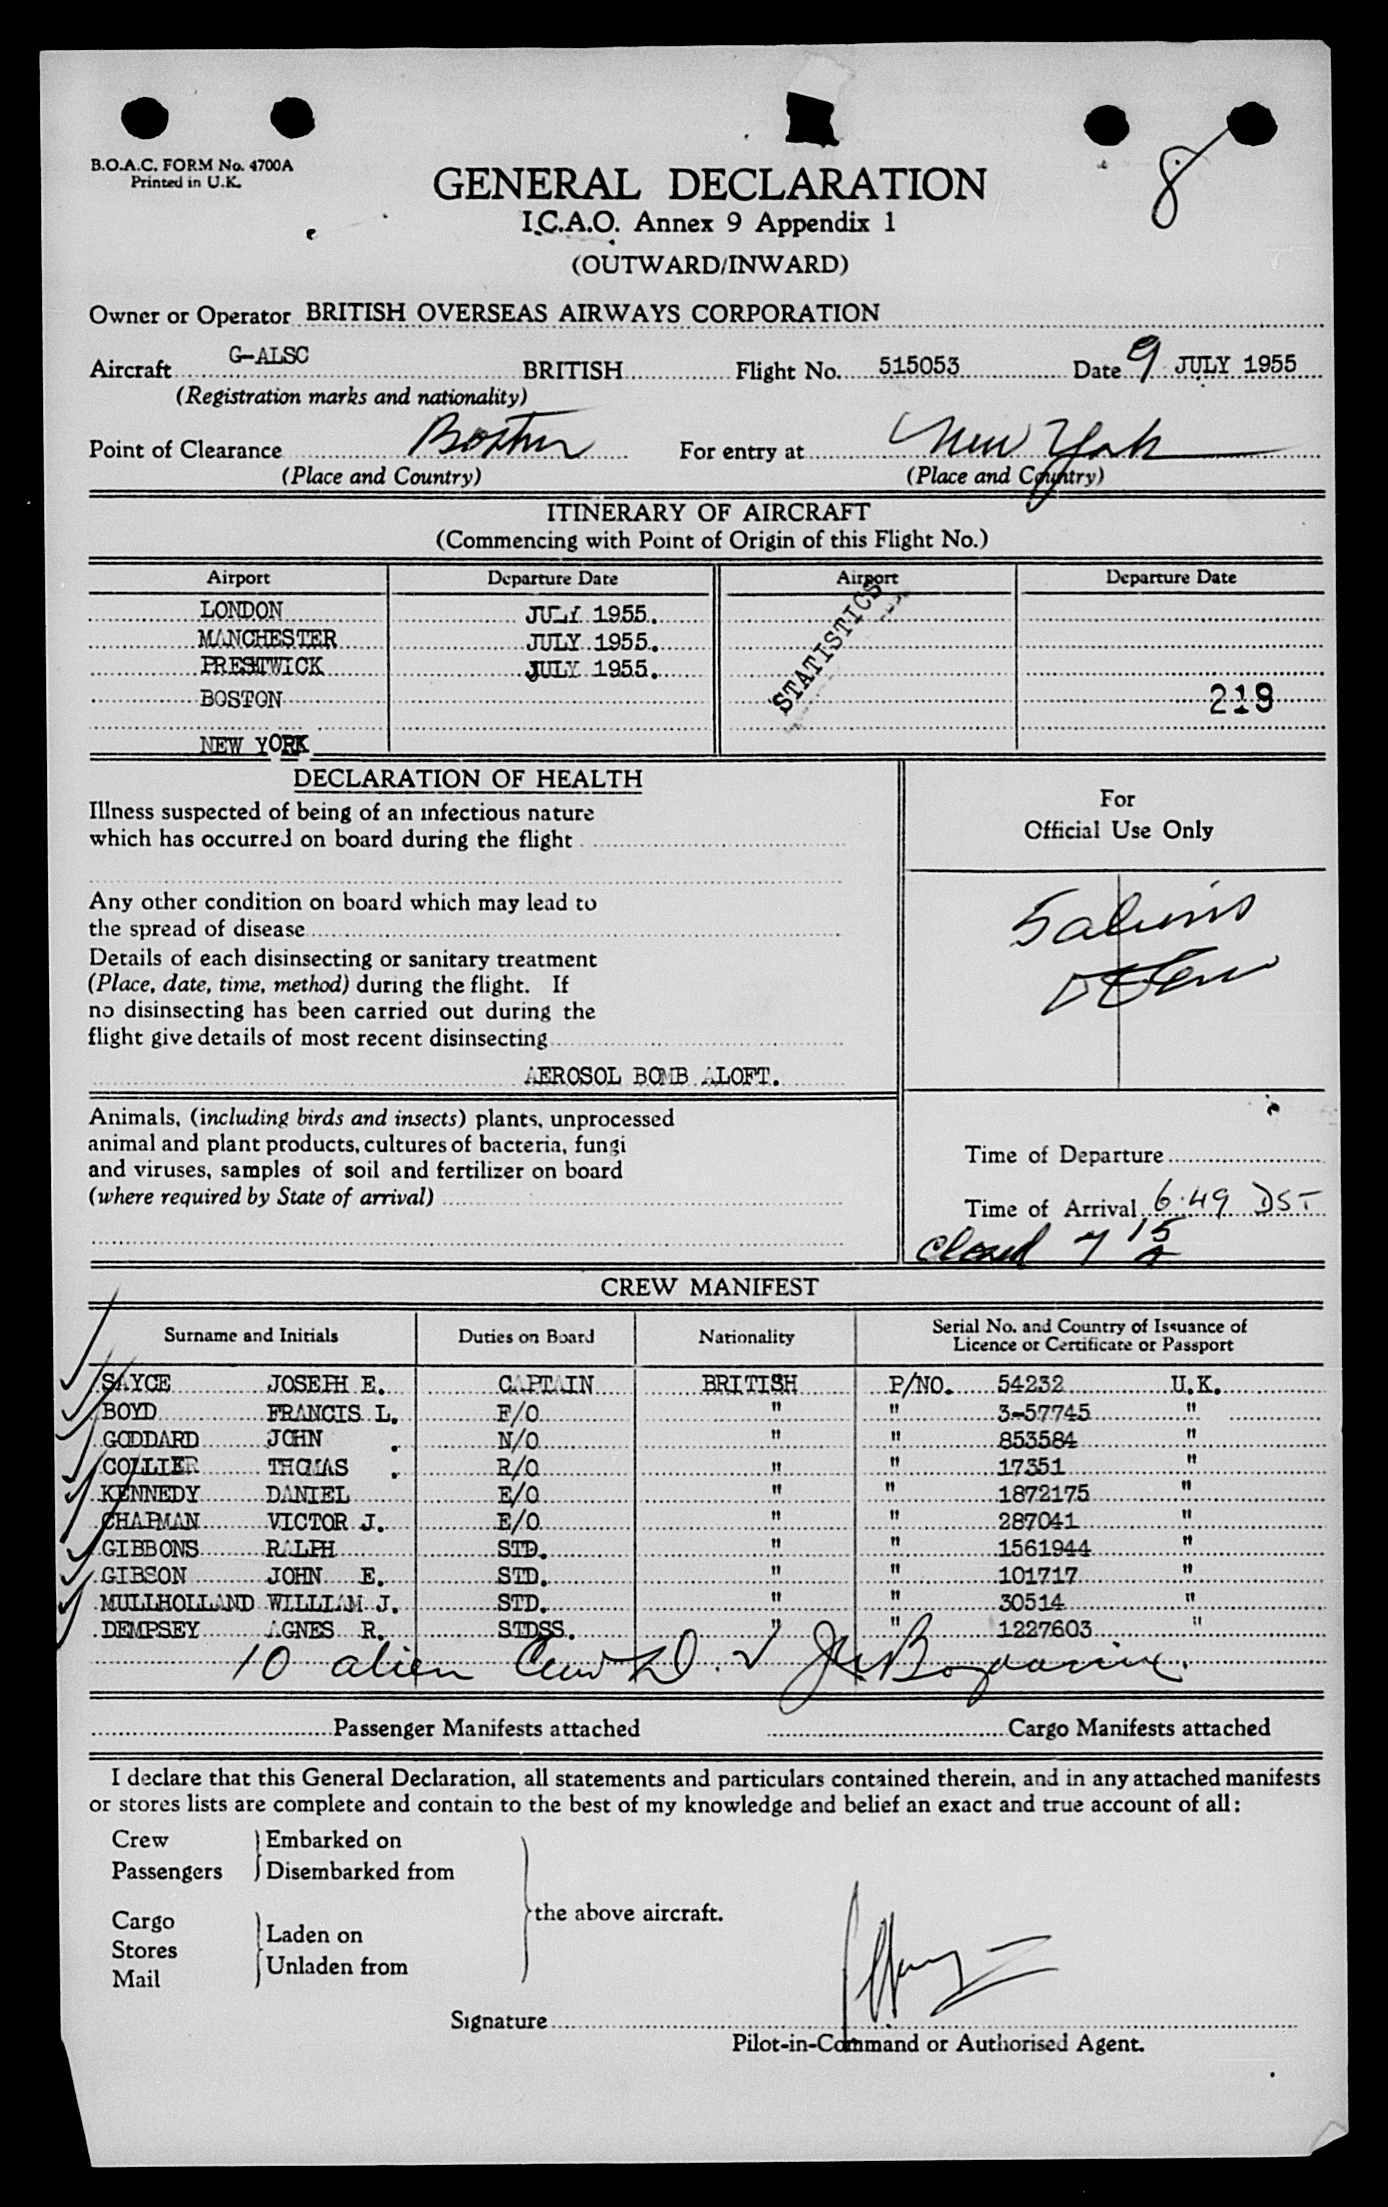 B.O.A.C. FORM No. 4700A
Printed in U.K.
8
GENERAL DECLARATION
I.C.A.O. Annex 9 Appendix 1
(OUTWARD/INWARD)
Owner or Operator BRITISH OVERSEAS AIRWAYS CORPORATION
Aircraft G-ALSC BRITISH Flight No. 515053 Date 9 JULY 1955
(Registration marks and nationality)
Point of Clearance Boston For entry at New York
(Place and Country) (Place and Country)
ITINERARY OF AIRCRAFT
(Commencing with Point of Origin of this Flight No.)
Airport Departure Date Airport Departure Date
LONDON JULY 1955.
MANCHESTER JULY 1955.
PRESTWICK JULY 1955.
BOSTON
NEW YORK
STATISTICS
218
DECLARATION OF HEALTH
Illness suspected of being of an infectious nature
which has occurred on board during the flight
Any other condition on board which may lead to
the spread of disease
Details of each disinsecting or sanitary treatment
(Place, date, time, method) during the flight. If
no disinsecting has been carried out during the
flight give details of most recent disinsecting
AEROSOL BOMB ALOFT.
Animals, (including birds and insects) plants, unprocessed
animal and plant products, cultures of bacteria, fungi
and viruses, samples of soil and fertilizer on board
(where required by State of arrival)
For
Official Use Only
Time of Departure
Time of Arrival 6.49 DST
Closed 7 15
CREW MANIFEST
Surname and Initials Duties on Board Nationality Serial No. and Country of Issuance of
Licence or Certificate or Passport
SAYCE JOSEPH E. CAPTAIN BRITISH P/NO. 54232 U.K.
BOYD FRANCIS L. F/O " " 3-57745 "
GODDARD JOHN . N/O " " 853584 "
COLLIER THOMAS . R/O " " 17351 "
KENNEDY DANIEL E/O " " 1872175 "
CHAPMAN VICTOR J. E/O " " 287041 "
GIBBONS RALPH STD. " " 1561944 "
GIBSON JOHN E. STD. " " 101717 "
MULLHOLLAND WILLIAM J. STD. " " 30514 "
DEMPSEY AGNES R. STDSS. " " 1227603 "
10 alien Crew
Passenger Manifests attached Cargo Manifests attached
I declare that this General Declaration, all statements and particulars contained therein, and in any attached manifests
or stores lists are complete and contain to the best of my knowledge and belief an exact and true account of all:
Crew Embarked on
Passengers Disembarked from
the above aircraft.
Cargo
Stores Laden on
Mail Unladen from
Signature
Pilot-in-Command or Authorised Agent.